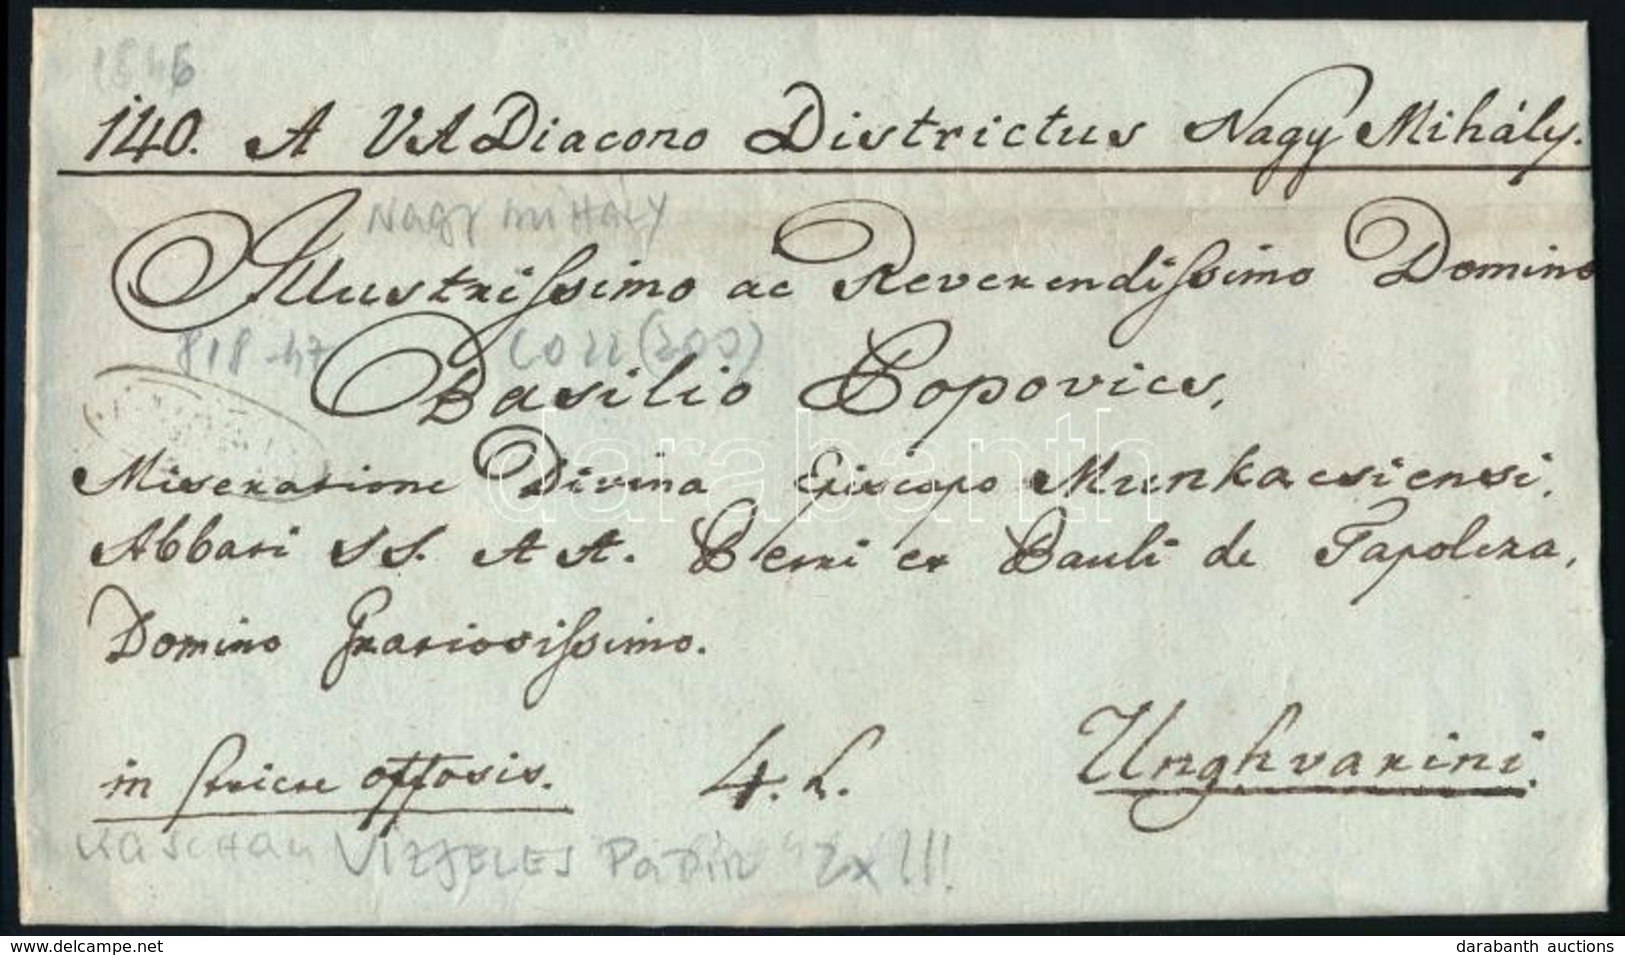 1846
140. A VADiacono Districtus Nagy Mihály.
Nagy mihaly
Illustrissimo ac Reverendissimo Domino
818-47
Basilio Popovics,
Miseratione Divina Episcopo Munkacsiensi,
Abbati SS. A A. Petri et Pauli de Tapolcza,
Domino Gratiosissimo.
in stricte offosis. 4. L. Unghvarini.
KASCHAU VIZJELES PaPíR 2x !!!
darabanth
www.delcampe.net
darabanth auctions